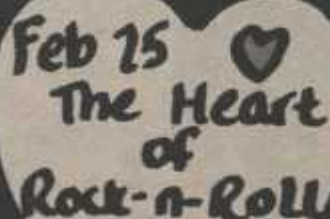 Feb 15
The Heart
of
Rock-n-Roll